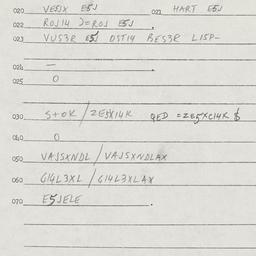 020 VESJX E5J 021 HART E5J
022 ROJ14 J=ROJ E5J
023 VUS3R E5J OST14 BES3R LISP-
024 —
025 O
030 S+OK / ZE5X14K QED = ZE5XC14K $
040 O
050 VAJSXNDL / VAJSXNDLAX
060 G14L3XL / G14L3XLAX
070 E5JELE